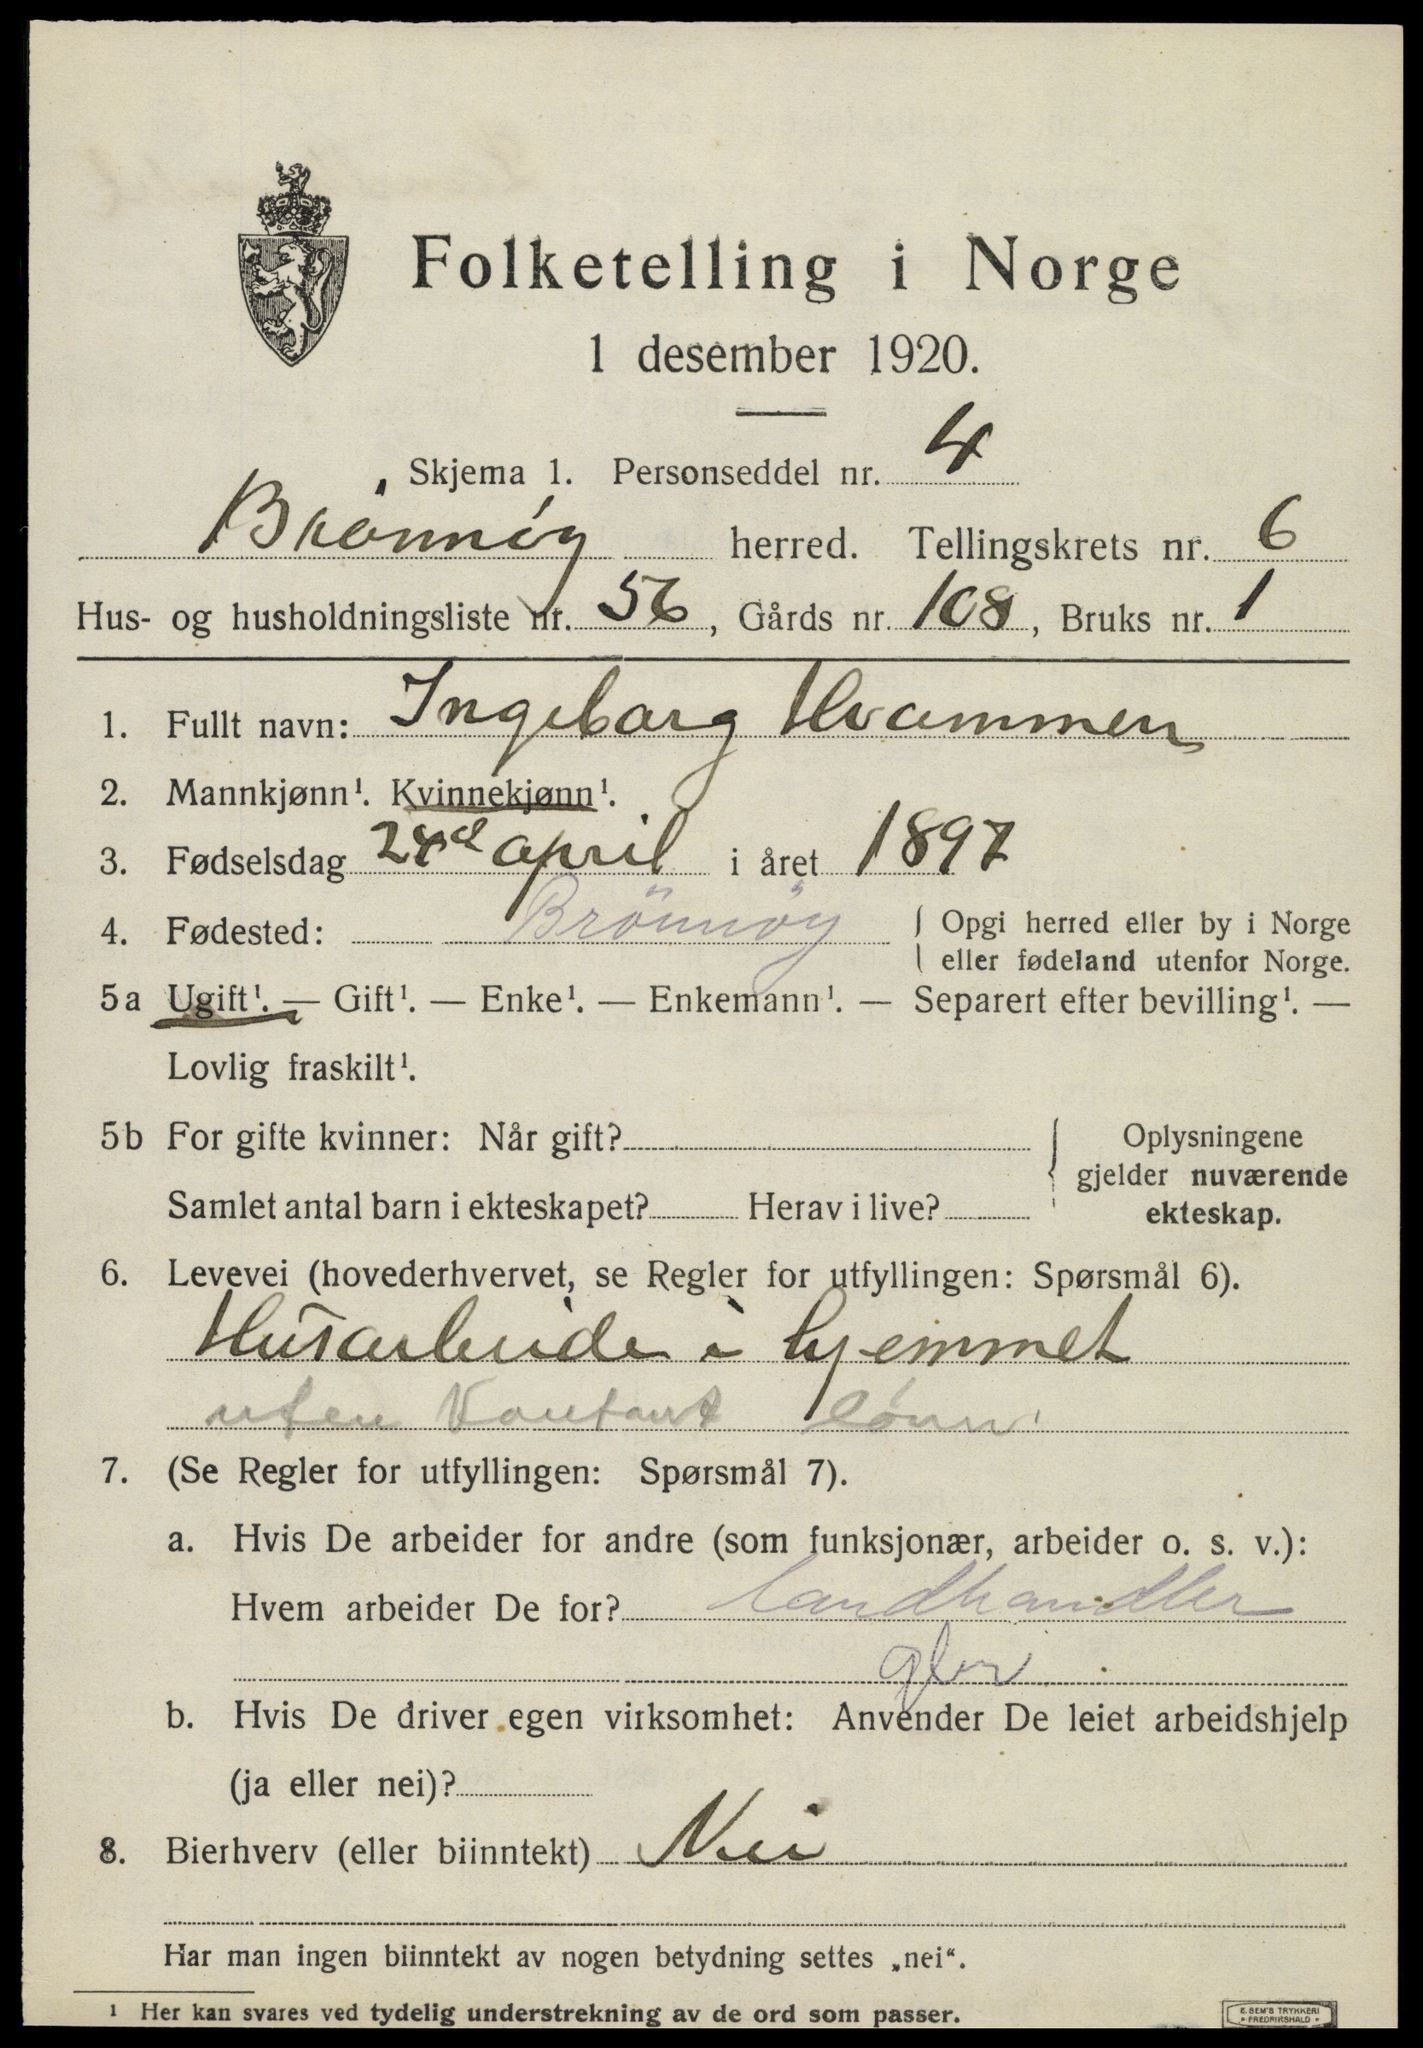 Folketelling i Norge
1 desember 1920.
Skjema 1. Personseddel nr. 4
Brönnöy herred. Tellingskrets nr. 6
Hus- og husholdningsliste nr. 56, Gårds nr. 108, Bruks nr. 1
1. Fullt navn: Ingeborg Hvammen
2. Mannkjønn¹. Kvinnekjønn¹.
3. Fødselsdag april i året 1897
4. Fødested: Brönnöy { Opgi herred eller by i Norge
eller fødeland utenfor Norge.
5a Ugift¹. — Gift¹. — Enke¹. — Enkemann¹. — Separert efter bevilling¹. —
Lovlig fraskilt¹.
5b For gifte kvinner: Når gift? { Oplysningene
gjelder nuværende
Samlet antal barn i ekteskapet? Herav i live? ekteskap.
6. Levevei (hovederhvervet, se Regler for utfyllingen: Spørsmål 6).
Husarbeide i hjemmet
uten kontant lønn
7. (Se Regler for utfyllingen: Spørsmål 7).
a. Hvis De arbeider for andre (som funksjonær, arbeider o. s. v.):
Hvem arbeider De for? landhandler
b. Hvis De driver egen virksomhet: Anvender De leiet arbeidshjelp
(ja eller nei)?
8. Bierhverv (eller biinntekt) Nei
Har man ingen biinntekt av nogen betydning settes „nei“.
¹ Her kan svares ved tydelig understrekning av de ord som passer.
E. SEM'S TRYKKERI
• FREDRIKSHALD •